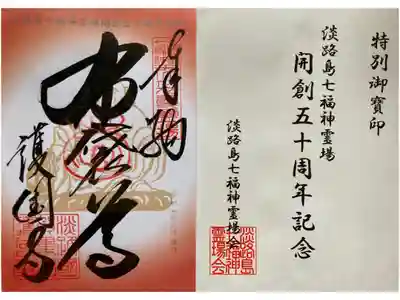 特別御寶印
淡路島七福神霊場
開創五十周年記念
淡路島七福神霊場会
淡路島
七福神
霊場会
奉拝
布袋尊
護国寺